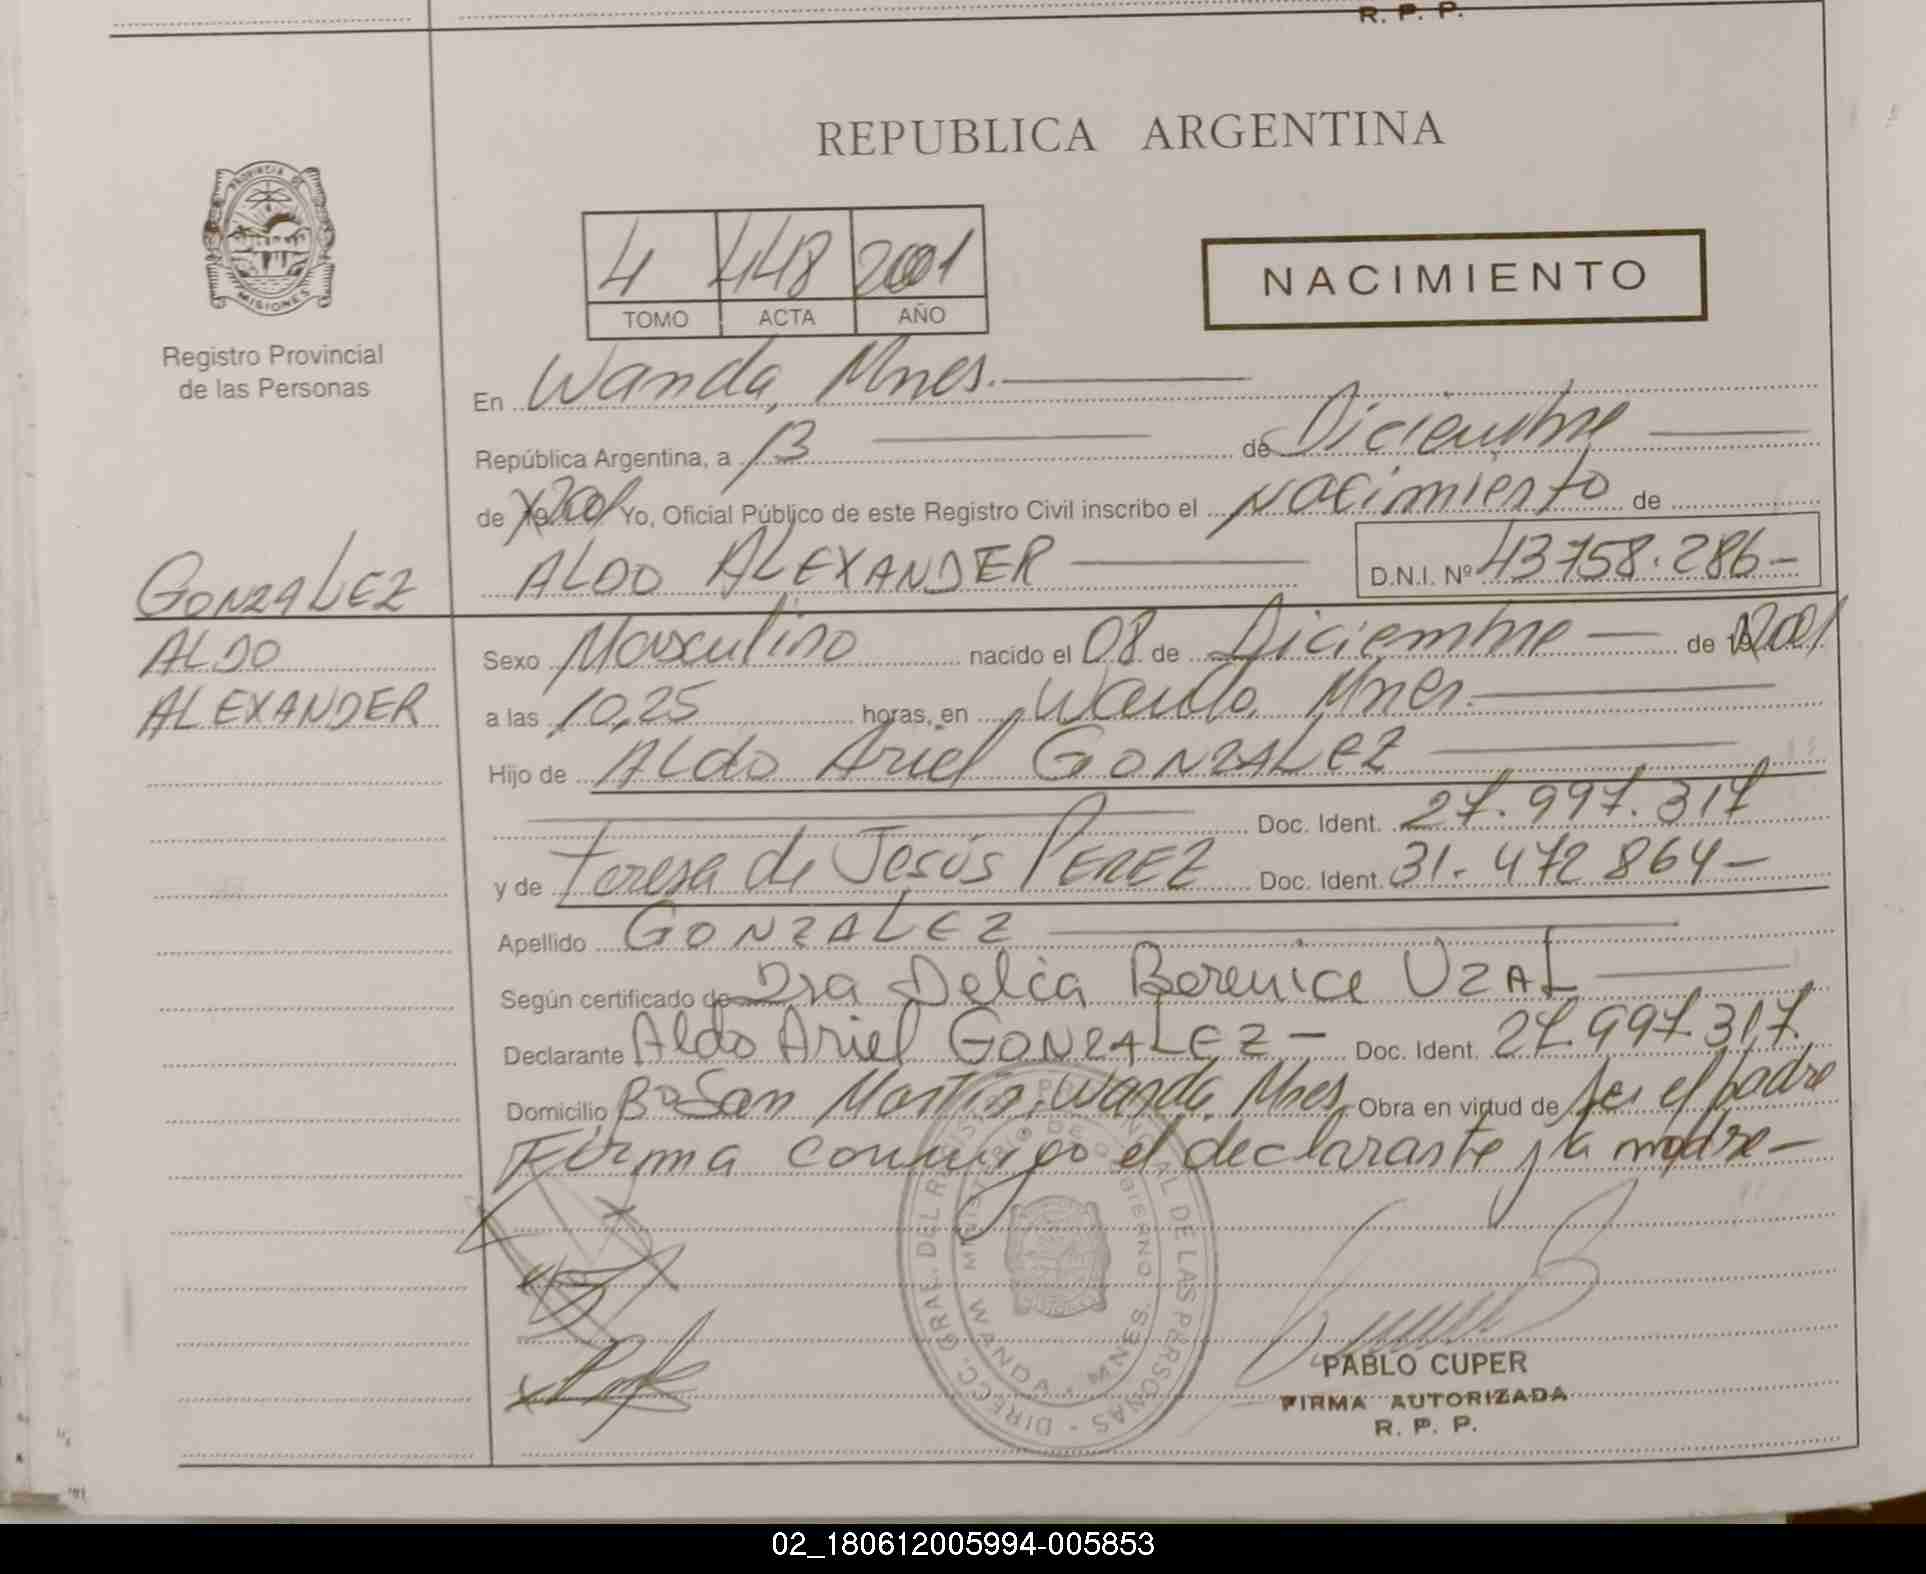 R. P. P.
REPUBLICA ARGENTINA
PROVINCIA DE
MISIONES
Registro Provincial
de las Personas
4 448 2001
TOMO ACTA AÑO
NACIMIENTO
En Wanda, Mnes.
República Argentina, a 13 de Diciembre
de 19 2001 Yo, Oficial Público de este Registro Civil inscribo el nacimiento de
ALDO ALEXANDER D.N.I. Nº 43758.286-
GONZALEZ
ALDO
ALEXANDER
Sexo Masculino nacido el 08 de Diciembre de 19 2001
a las 10,25 horas, en Wanda, Mnes.
Hijo de Aldo Ariel GONZALEZ
Doc. Ident. 27.997.317
y de Teresa de Jesús PEREZ Doc. Ident. 31.472864-
Apellido GONZALEZ
Según certificado de Dra Delia Berenice UZAL
Declarante Aldo Ariel GONZALEZ - Doc. Ident. 27.997.317.
Domicilio Bº San Martín, Wanda, Mnes. Obra en virtud de ser el padre
Firma conmigo el declarante y la madre-
DIRECC. GRAL. DEL REGIST. PROVINCIAL DE LAS PERSONAS -
MINISTERIO DE GOBIERNO
WANDA - MNES.
PABLO CUPER
FIRMA AUTORIZADA
R. P. P.
02_180612005994-005853